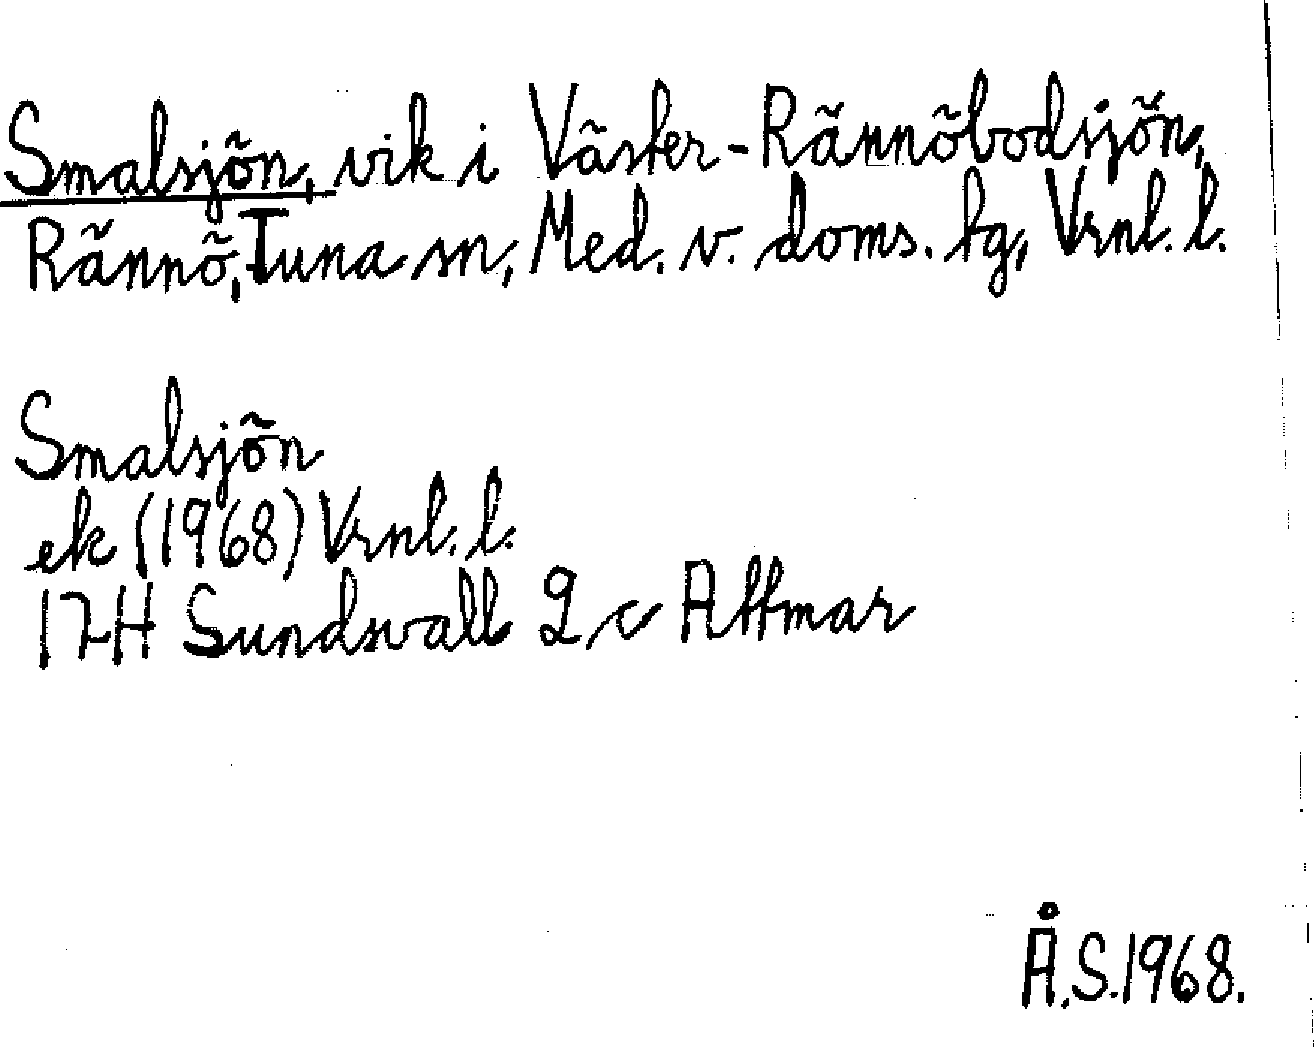 Smalsjön, vik i Väster-Rännöbodsjön,
Rännö, Tuna sn, Med. v. doms. hg, Vrnl. l.
Smalsjön
ek (1968) Vrnl. l.
17H Sundsvall 2 c Attmar
Å.S. 1968.